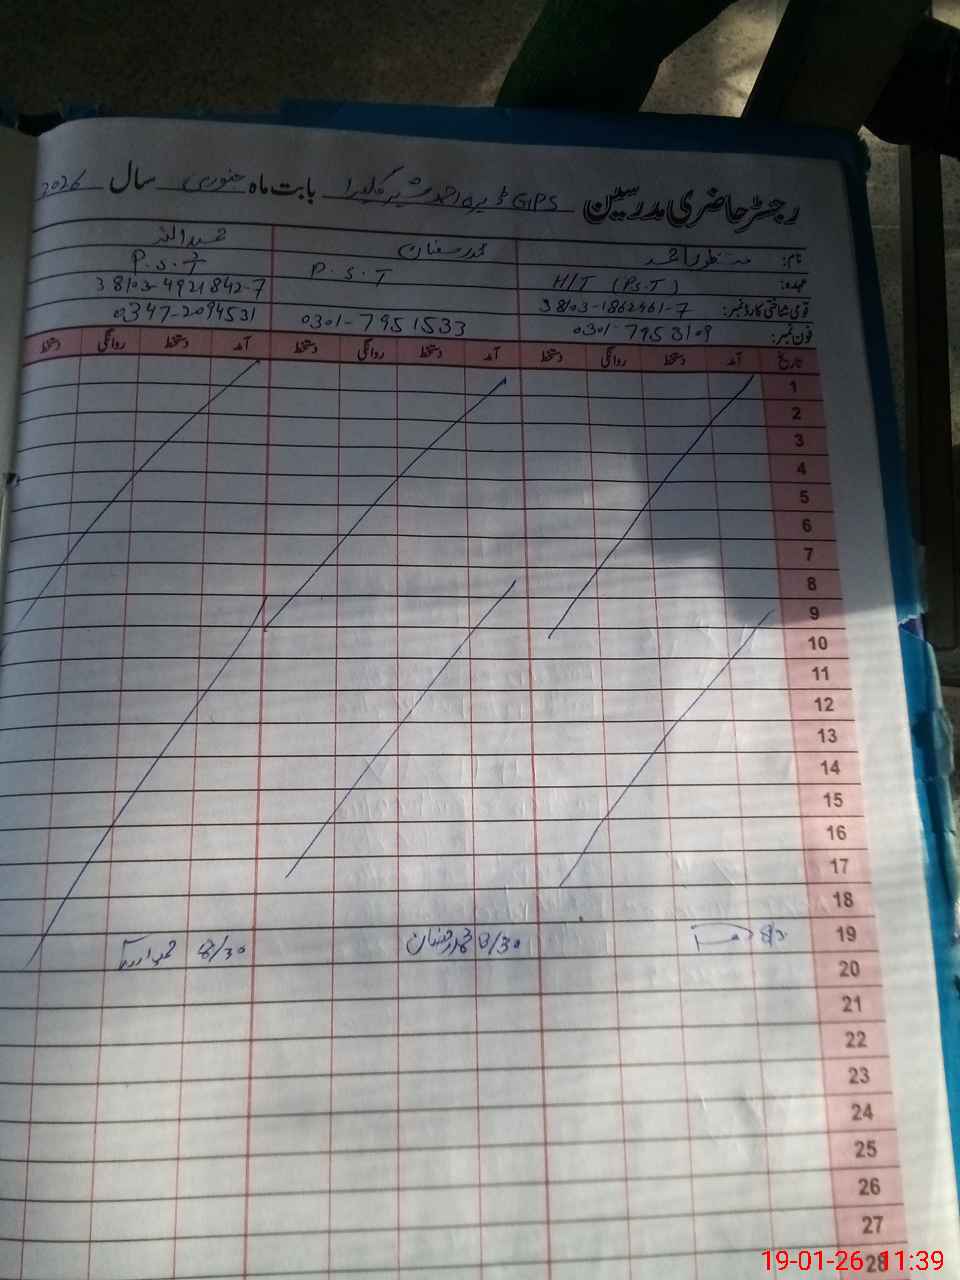 رجسٹر حاضری مدرسین GPS ڈیرہ احمد شیر بابت ماہ جنوری سال 2026
نام: محمد رمضان حمید اللہ
عہدہ: H/T (P.S.T) P.S.T P.S.T
قومی شناختی کارڈ نمبر: 38103-1862461-7 38103-4921842-7
فون نمبر: 0301-7953109 0301-7951533 0347-2094531
تاریخ آمد دستخط روانگی دستخط آمد دستخط روانگی دستخط آمد دستخط روانگی دستخط
1
2
3
4
5
6
7
8
9
10
11
12
13
14
15
16
17
18
19 8/30 محمد رمضان 8/30
20
21
22
23
24
25
26
27
28
19-01-26 11:39